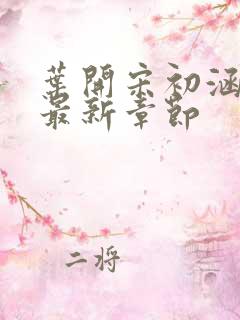 葉開宋初涵
最新章節
二將